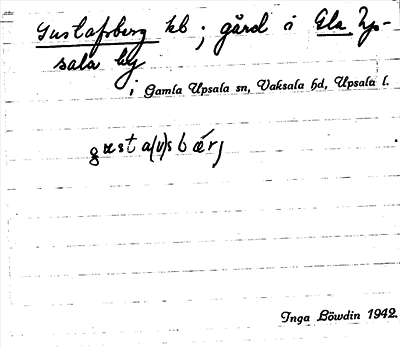 Gustafsberg hb ; gård i Gla Up-
sala by
i Gamla Upsala sn, Vaksala hd, Upsala l.
gusta(v)sbærj
Inga Löwdin 1942.